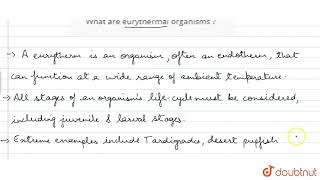 What are eurythermal organisms ?
→ A eurytherm is an organism, often an endotherm, that
can function at a wide range of ambient temperature.
→ All stages of an organism's life-cycle must be considered,
including juvenile & larval stages.
→ Extreme examples include Tardigrades, desert pupfish
doubtnut